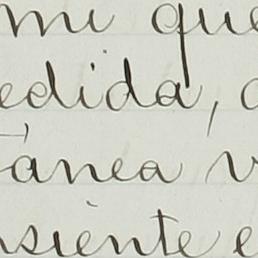 mi que
edida,
tánea v
nsiente e